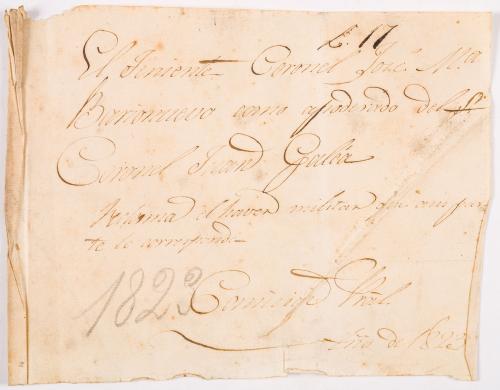 L. 17
El Teniente Coronel José Ma
Barionuevo como apoderado del Sr
Coronel Juan Galba
el haver militar que en par
te le corresponde
1823
Año de 1823